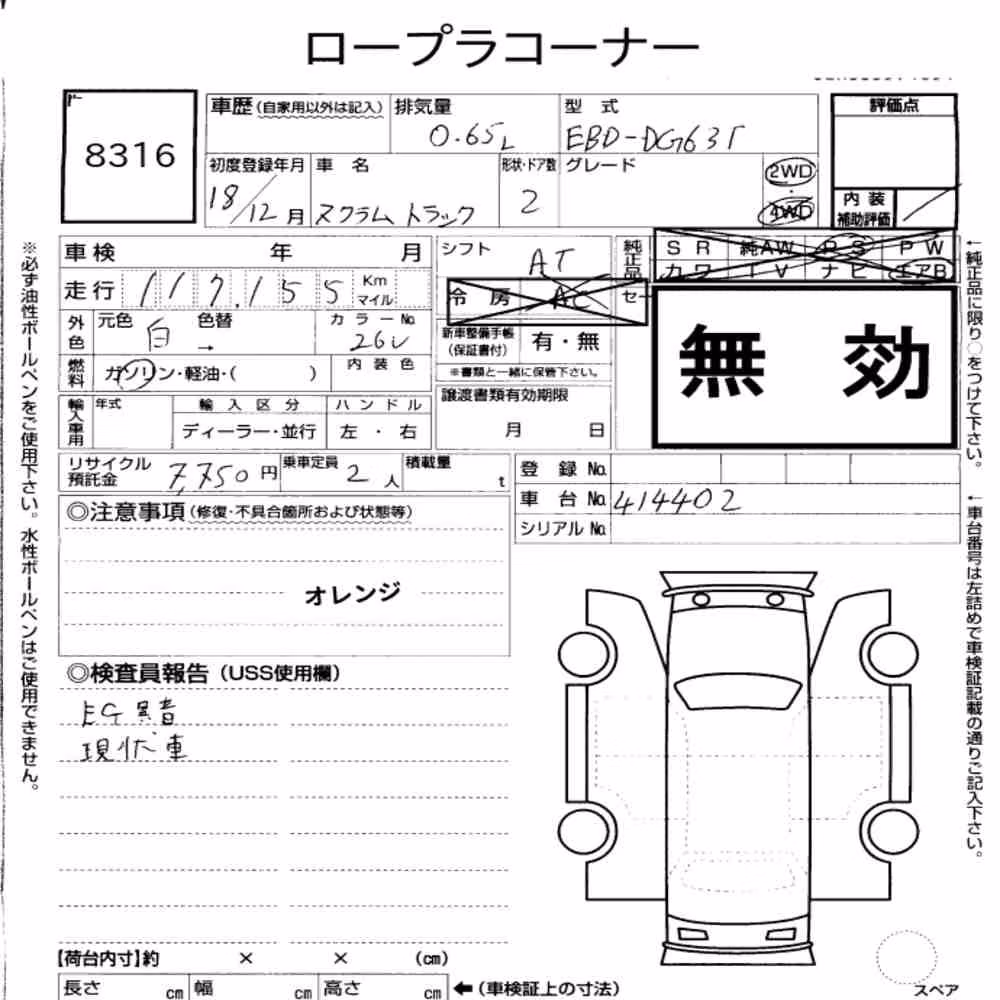 ロープラコーナー
8316
車歴（自家用以外は記入） 排気量 型 式 評価点
0.65L EBD-DG63T
初度登録年月 車 名 形状・ドア数 グレード
18/12月 スクラム トラック 2 2WD・4WD
内装補助評価
車検 年 月 シフト AT 純正品 SR 純AW PS PW
カワ TV ナビ エアB
走行 117,155 Km マイル 冷 房 AC
外色 元色 白 色替 → カラーNo. 26U
新車整備手帳（保証書付） 有・無
※書類と一緒に保管下さい。
燃料 ガソリン・軽油・（ ） 内装色
無 効
輸入車用 年式 輸入区分 ハンドル
ディーラー・並行 左・右
譲渡書類有効期限
月 日
リサイクル預託金 7,750円 乗車定員 2人 積載量 t
登 録 No.
車 台 No. 414402
シリアル No.
◎注意事項（修復・不具合箇所および状態等）
オレンジ
◎検査員報告（USS使用欄）
EG異音
現状車
【荷台内寸】約 × × （cm）
長さ cm 幅 cm 高さ cm ←（車検証上の寸法）
スペア
※必ず油性ボールペンをご使用下さい。水性ボールペンはご使用できません。
←純正品に限り○をつけて下さい。
←車台番号は左詰めで車検証記載の通りご記入下さい。